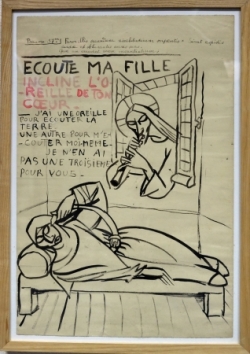 ECOUTE MA FILLE
INCLINE L'O
REILLE DE TON
CŒUR_
_ J'AI UNE OREILLE
POUR ECOUTER LA
TERRE.
UNE AUTRE POUR M'E-
COUTER MOI-MEME.
JE N'EN AI
PAS UNE TROISIEME
POUR VOUS_